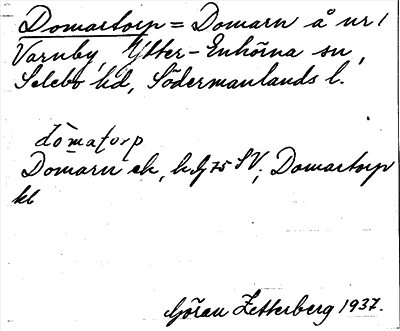 Domartorp = Domarn å nr 1
Varnby, Ytter-Enhörna sn,
Selebo hd, Södermanlands l.
dömatorp
Domarn ek, 75 SV; Domartorp
kb
Göran Zetterberg 1937.